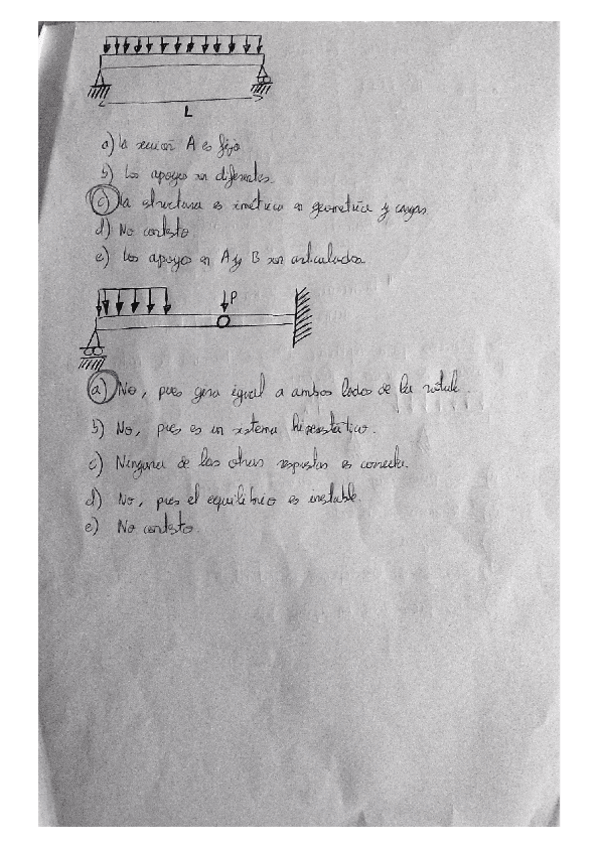 L
a) la sección A es fija
b) Los apoyos son diferentes.
c) la structura es simétrica en geometría y cargas
d) No contesto
e) Los apoyos en A y B son articulados.
P
a) No, pues gira igual a ambos lados de la rótula.
b) No, pues es un sistema hiperestático.
c) Ninguna de las otras respuestas es correcta.
d) No, pues el equilibrio es inestable.
e) No contesto.